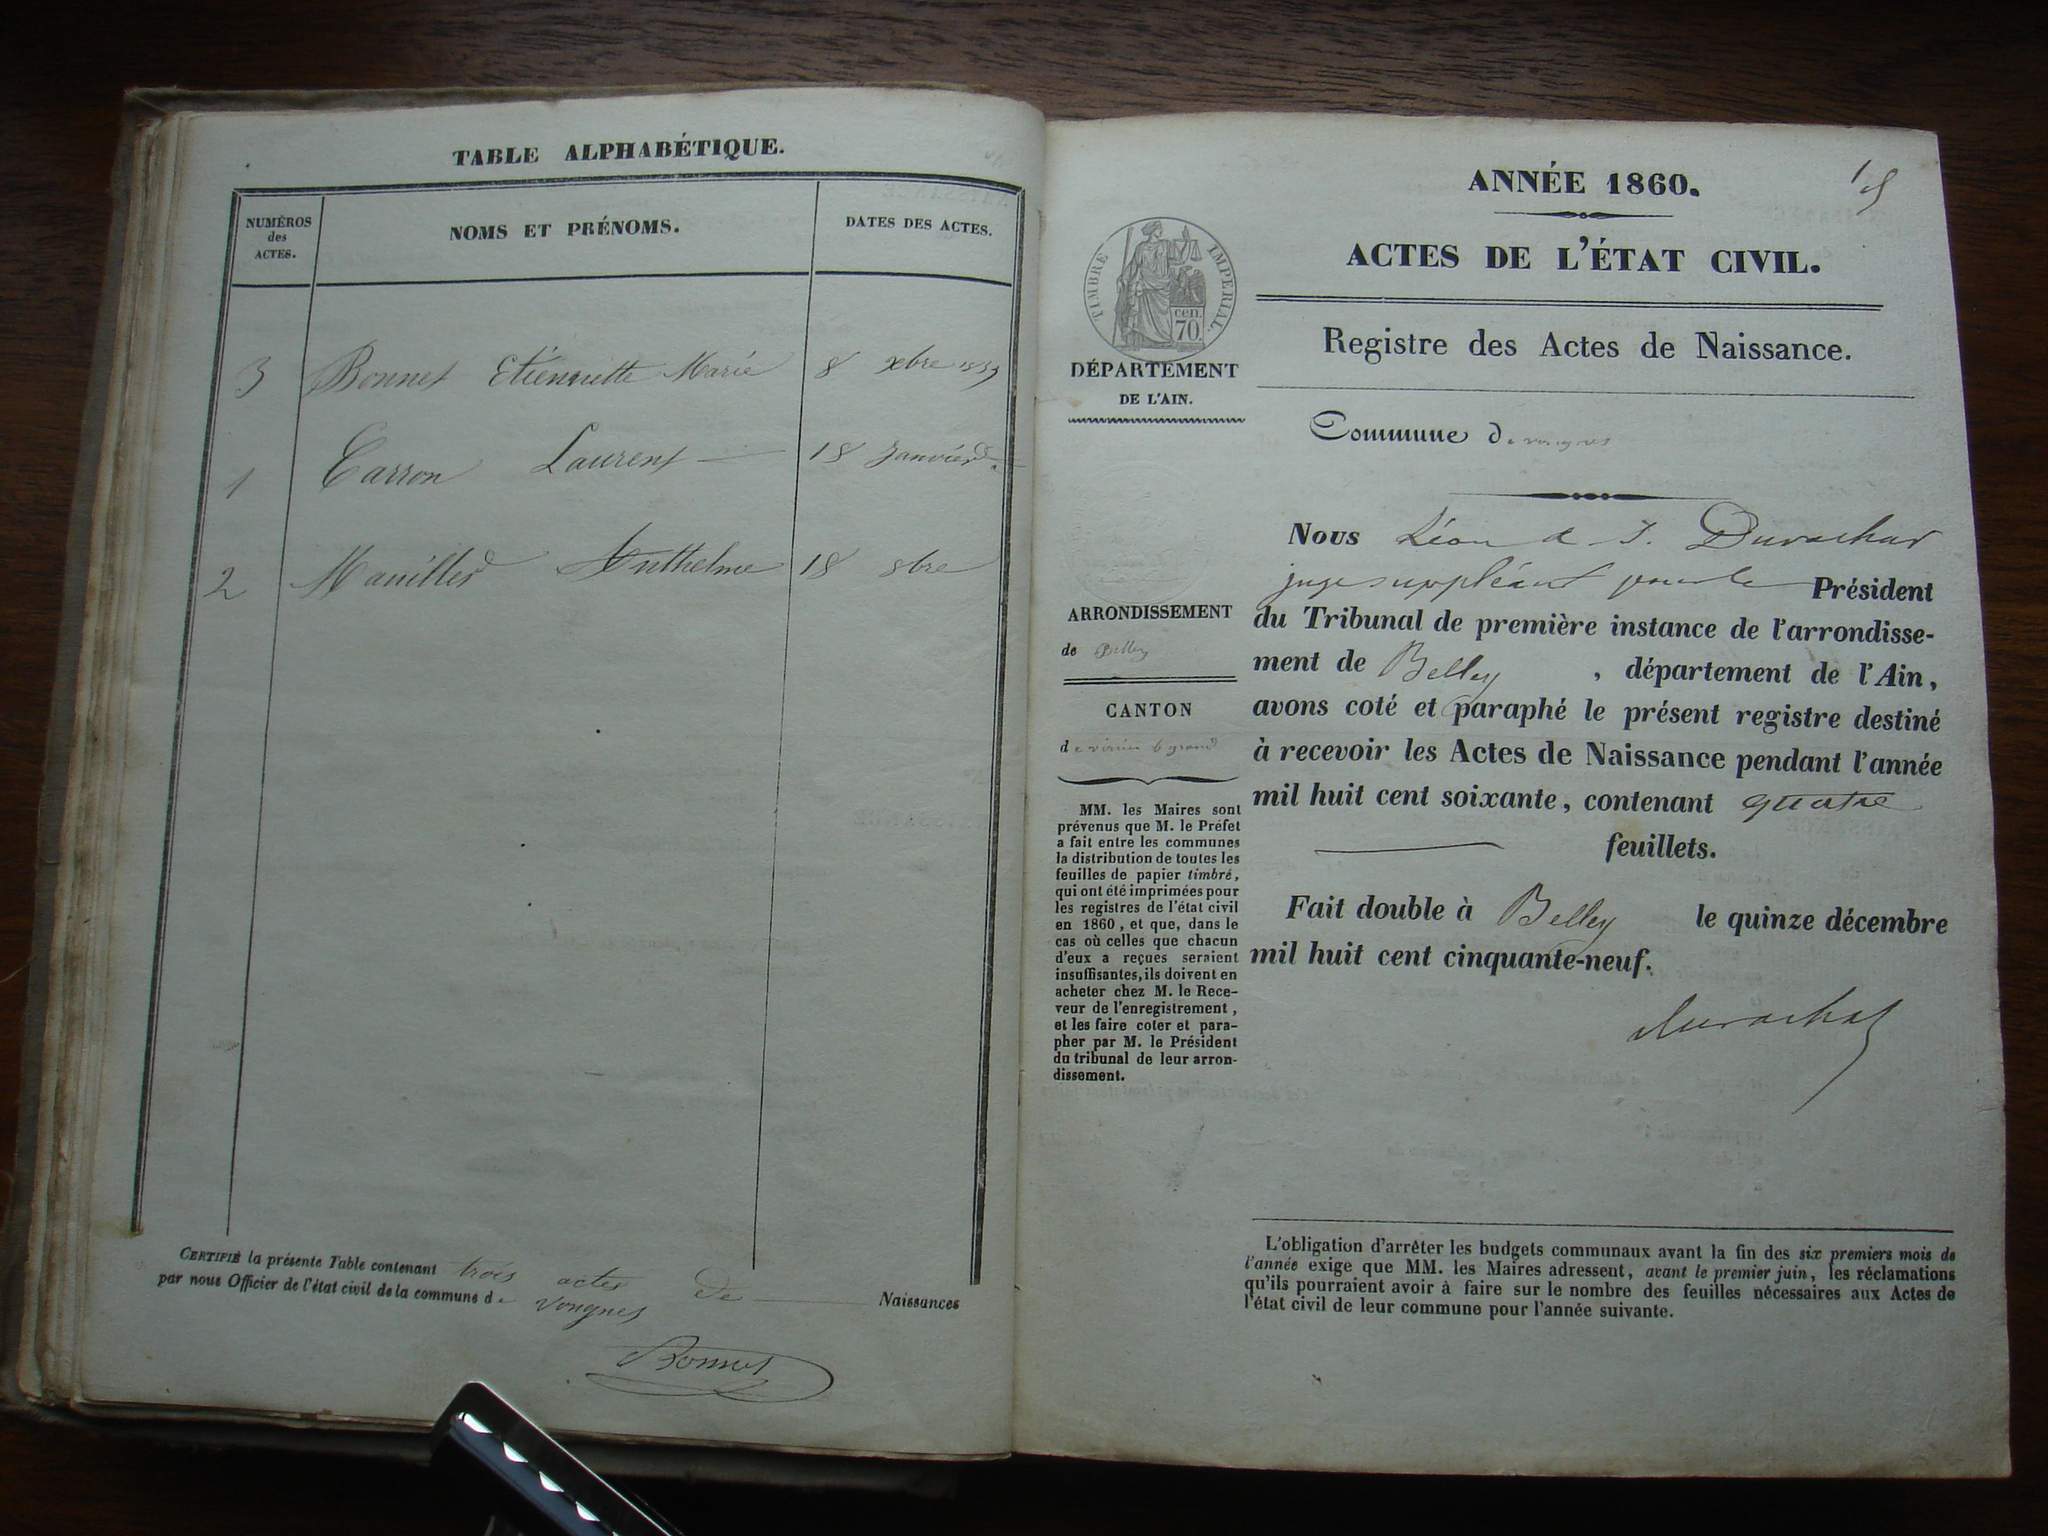 TABLE ALPHABÉTIQUE.
NUMÉROS
des
ACTES.
NOMS ET PRÉNOMS.
DATES DES ACTES.
3 Bonnet Etiennette Marie 8 xbre 1859
1 Carron Laurent 18 Janvier
2 Manillier Anthelme 18 8bre
CERTIFIÉ la présente Table contenant trois actes de Naissances
par nous Officier de l'état civil de la commune de Vongnes
Bonnet
ANNÉE 1860.
ACTES DE L'ÉTAT CIVIL.
Registre des Actes de Naissance.
TIMBRE IMPÉRIAL.
cen.
70.
DÉPARTEMENT
DE L'AIN.
Commune de vongnes
ARRONDISSEMENT
de Belley
CANTON
de virieu le grand
MM. les Maires sont
prévenus que M. le Préfet
a fait entre les communes
la distribution de toutes les
feuilles de papier timbré,
qui ont été imprimées pour
les registres de l'état civil
en 1860, et que, dans le
cas où celles que chacun
d'eux a reçues seraient
insuffisantes, ils doivent en
acheter chez M. le Rece-
veur de l'enregistrement,
et les faire coter et para-
pher par M. le Président
du tribunal de leur arron-
dissement.
Nous Léon Durochat
juge suppléant pour le Président
du Tribunal de première instance de l'arrondisse-
ment de Belley, département de l'Ain,
avons coté et paraphé le présent registre destiné
à recevoir les Actes de Naissance pendant l'année
mil huit cent soixante, contenant quatre
feuillets.
Fait double à Belley le quinze décembre
mil huit cent cinquante-neuf.
Durochat
L'obligation d'arrêter les budgets communaux avant la fin des six premiers mois de
l'année exige que MM. les Maires adressent, avant le premier juin, les réclamations
qu'ils pourraient avoir à faire sur le nombre des feuilles nécessaires aux Actes de
l'état civil de leur commune pour l'année suivante.